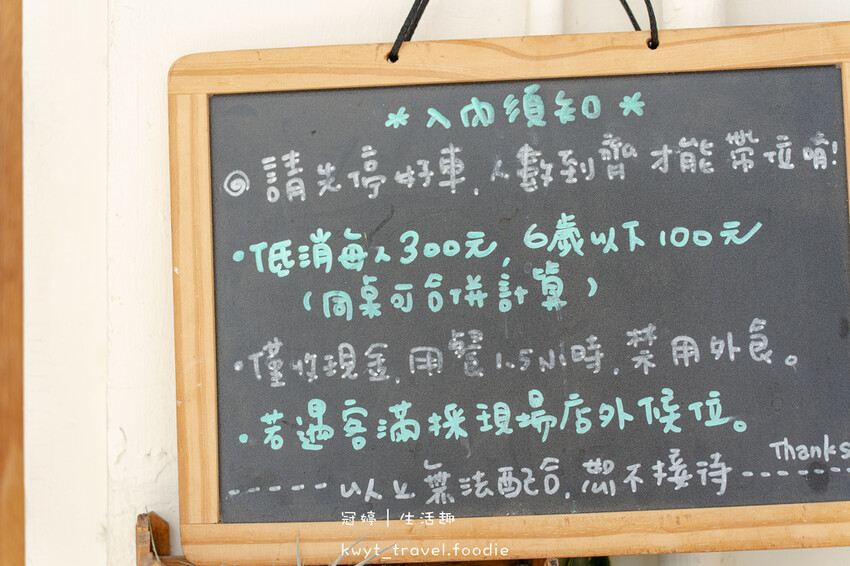 *入內須知*
◎請先停好車，人數到齊才能帶位唷!
·低消每人300元，6歲以下100元
(同桌可合併計算)
·僅收現金，用餐1.5小時，禁用外食。
·若遇客滿採現場店外候位。
-----以上無法配合，恕不接待------
Thanks
冠婷|生活趣
kwyt_travel.foodie